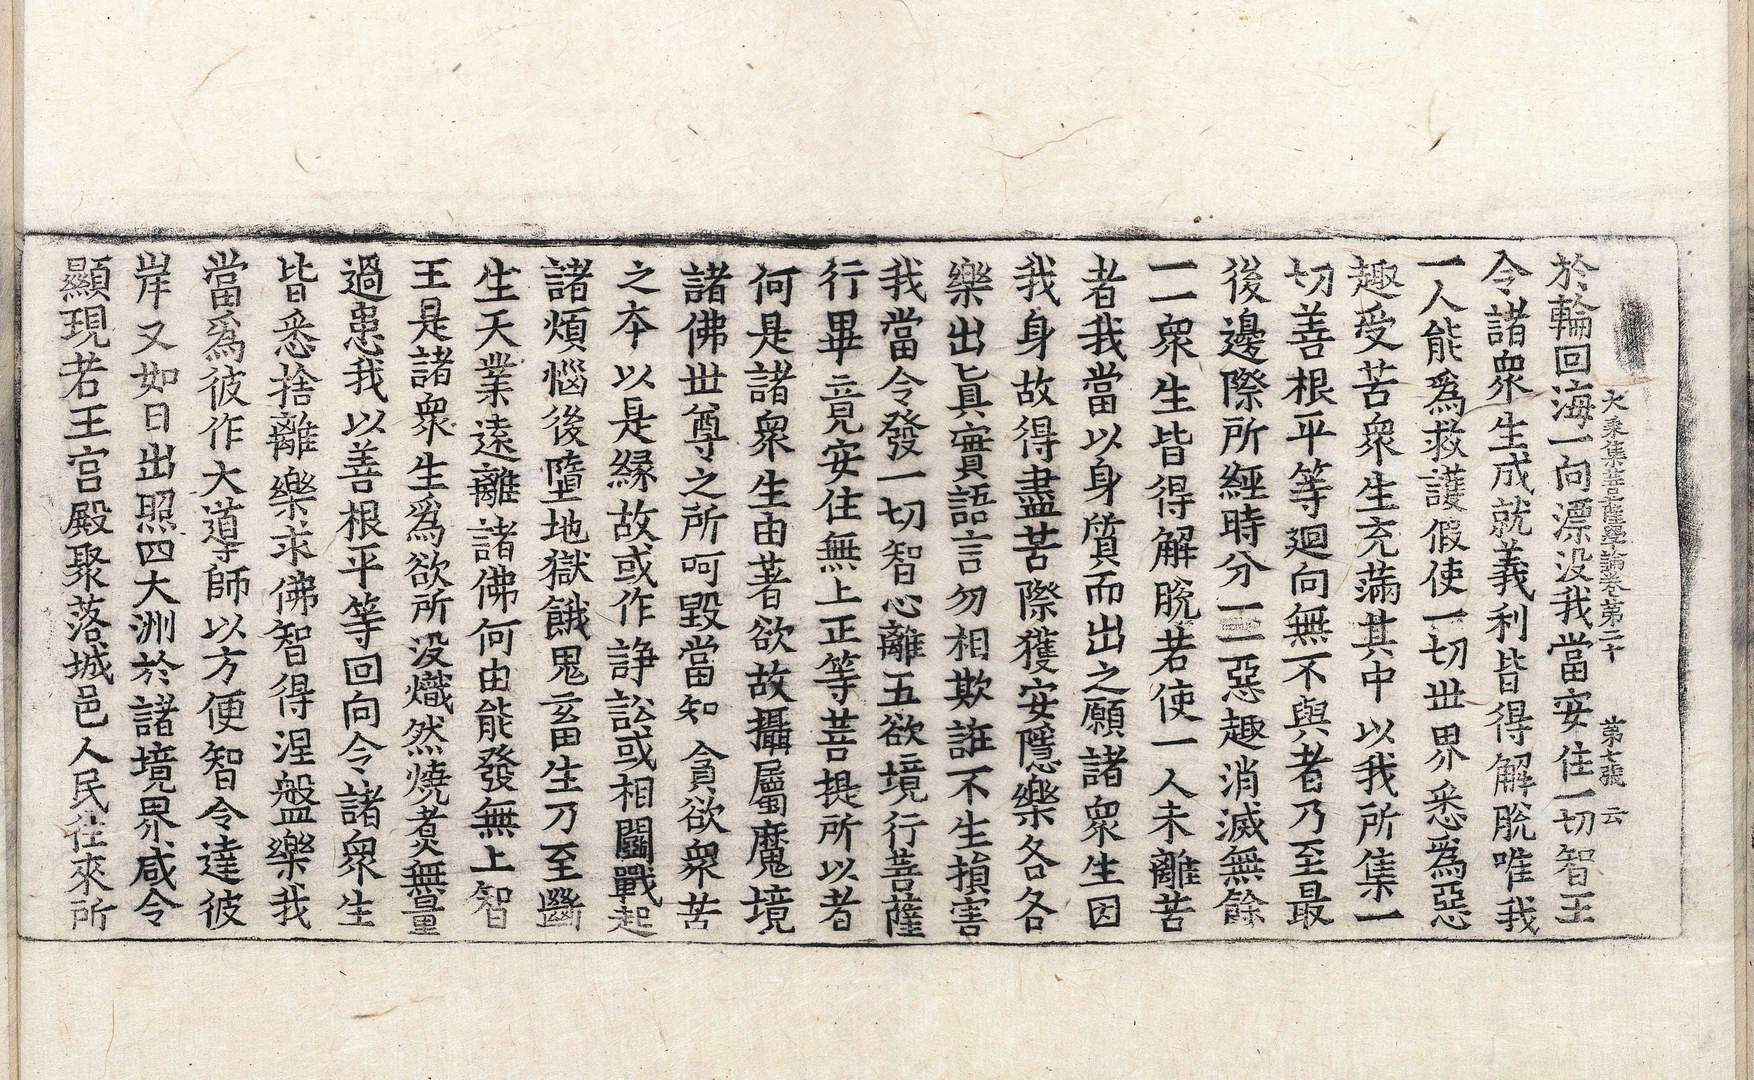 大乘集菩薩學論卷第二十　第七張　云
於輪回海一向漂没我當安住一切智王
令諸衆生成就義利皆得解脫唯我
一人能爲救護假使一切世界悉爲惡
趣受苦衆生充滿其中以我所集一
切善根平等廻向無不與者乃至最
後邊際所經時分一一惡趣消滅無餘
一一衆生皆得解脫若使一人未離苦
者我當以身質而出之願諸衆生因
我身故得盡苦際獲安隱樂各各
樂出眞實語言勿相欺誑不生損害
我當令發一切智心離五欲境行菩薩
行畢竟安住無上正等菩提所以者
何是諸衆生由著欲故攝屬魔境
諸佛世尊之所呵毀當知貪欲衆苦
之本以是緣故或作諍訟或相鬬戰起
諸煩惱後墮地獄餓鬼畜生乃至斷
生天業遠離諸佛何由能發無上智
王是諸衆生爲欲所没熾然燒煑無量
過患我以善根平等回向令諸衆生
皆悉捨離樂求佛智得涅盤樂我
當爲彼作大導師以方便智令達彼
岸又如日出照四大洲於諸境界咸令
顯現若王宮殿聚落城邑人民往來所